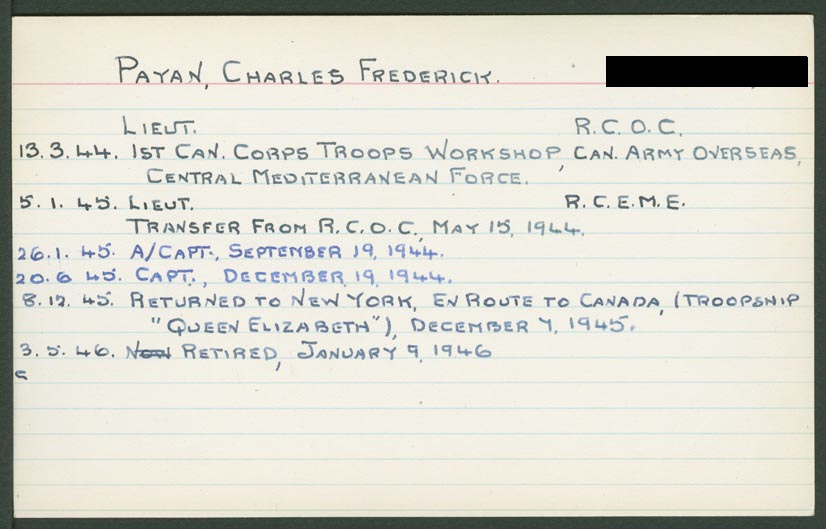 PAYAN, CHARLES FREDERICK.
LIEUT. R.C.O.C.
13.3.44. 1ST CAN. CORPS TROOPS WORKSHOP, CAN. ARMY OVERSEAS,
CENTRAL MEDITERRANEAN FORCE.
5.1.45. LIEUT. R.C.E.M.E.
TRANSFER FROM R.C.O.C., MAY 15, 1944.
26.1.45. A/CAPT., SEPTEMBER 19, 1944.
20.6 45. CAPT., DECEMBER 19, 1944.
8.12.45. RETURNED TO NEW YORK, EN ROUTE TO CANADA, (TROOPSHIP
"QUEEN ELIZABETH"), DECEMBER 7, 1945.
3.5.46. RETIRED, JANUARY 9, 1946